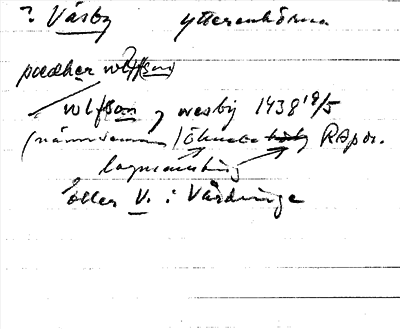 ? Väsby ytterenhörna
pædher wlffson
wlfson j wesby 1438 19/5
(nämndeman / Öknebo häby RApor.
lagmansting
eller V. i Vårdinge